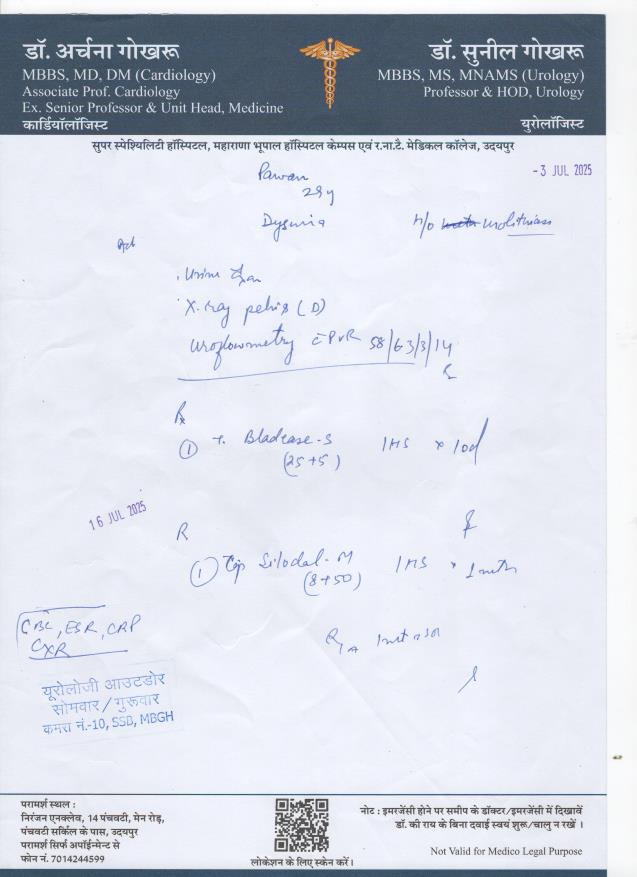 डॉ. अर्चना गोखरू
MBBS, MD, DM (Cardiology)
Associate Prof. Cardiology
Ex. Senior Professor & Unit Head, Medicine
कार्डियॉलॉजिस्ट
डॉ. सुनील गोखरू
MBBS, MS, MNAMS (Urology)
Professor & HOD, Urology
युरोलॉजिस्ट
सुपर स्पेश्यिलिटी हॉस्पिटल, महाराणा भूपाल हॉस्पिटल केम्पस एवं र.ना.टै. मेडिकल कॉलेज, उदयपुर
- 3 JUL 2025
Pawan
29y
Dysuria
H/O urolithiasis
Adv
Urine
X-ray pelvis (D)
Uroflowmetry c PVR 58/63/3/14
Rx
① T. Bladease-S 1HS x 10d
(25+5)
16 JUL 2025
R
① Cap Silodal-M 1HS x 1mth
(8+50)
CBC, ESR, CRP
CXR
यूरोलोजी आउटडोर
सोमवार / गुरूवार
कमरा नं.-10, SSB, MBGH
परामर्श स्थल :
निरंजन एनक्लेव, 14 पंचवटी, मेन रोड़,
पंचवटी सर्किल के पास, उदयपुर
परामर्श सिर्फ अपॉईन्मेन्ट से
फोन नं. 7014244599
लोकेशन के लिए स्केन करें।
नोट : इमरजेंसी होने पर समीप के डॉक्टर/इमरजेंसी में दिखावें
डॉ. की राय के बिना दवाई स्वयं शुरू/चालु न रखें ।
Not Valid for Medico Legal Purpose